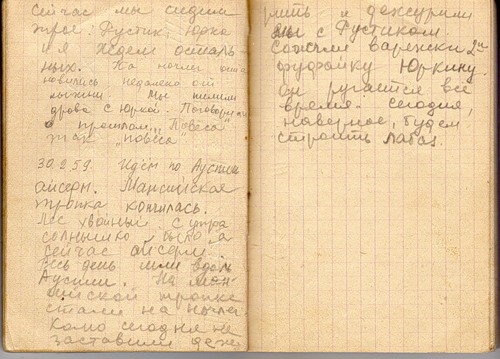 сейчас мы сидим
трое: Рустик, Юрка
и я ждем осталь-
ных. На ночлег оста
новились недалеко от
лыжни. Мы пилили
дрова с Юркой. Поговорили
о прошлом. Повеса
так "повеса"
30.2.59. Идем по Ауспии
Мансийская
тропка кончилась.
Лес хвойный. С утра
солнышко было, а
сейчас
Весь день шли вдоль
Ауспии. На ман-
сийской тропке
стали на ночлег
сегодня не
заставили деж
урить и дежурили
мы с Рустиком.
Сожгли варежки 2ую
фуфайку Юркину.
Он ругался все
время. Сегодня,
наверное, будем
строить лабаз.